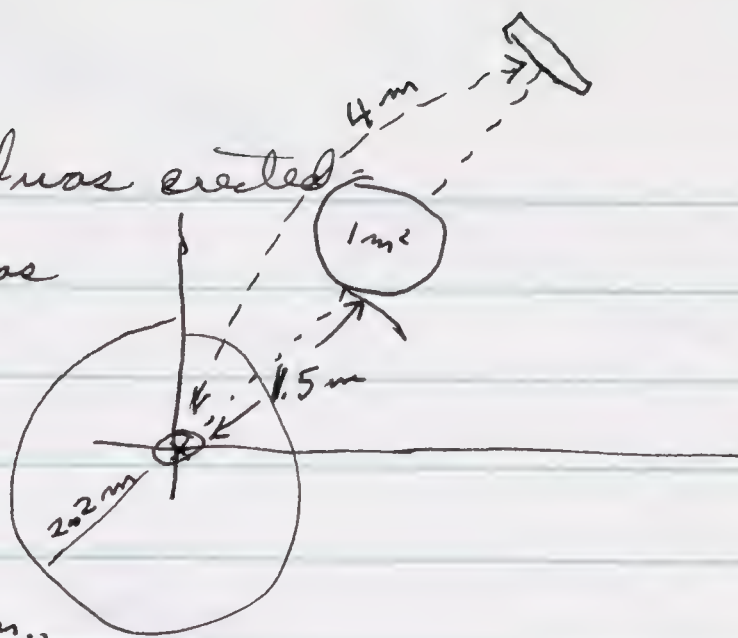 4 m
was erected
1 m²
as
1.5 m
2.2 m
m.